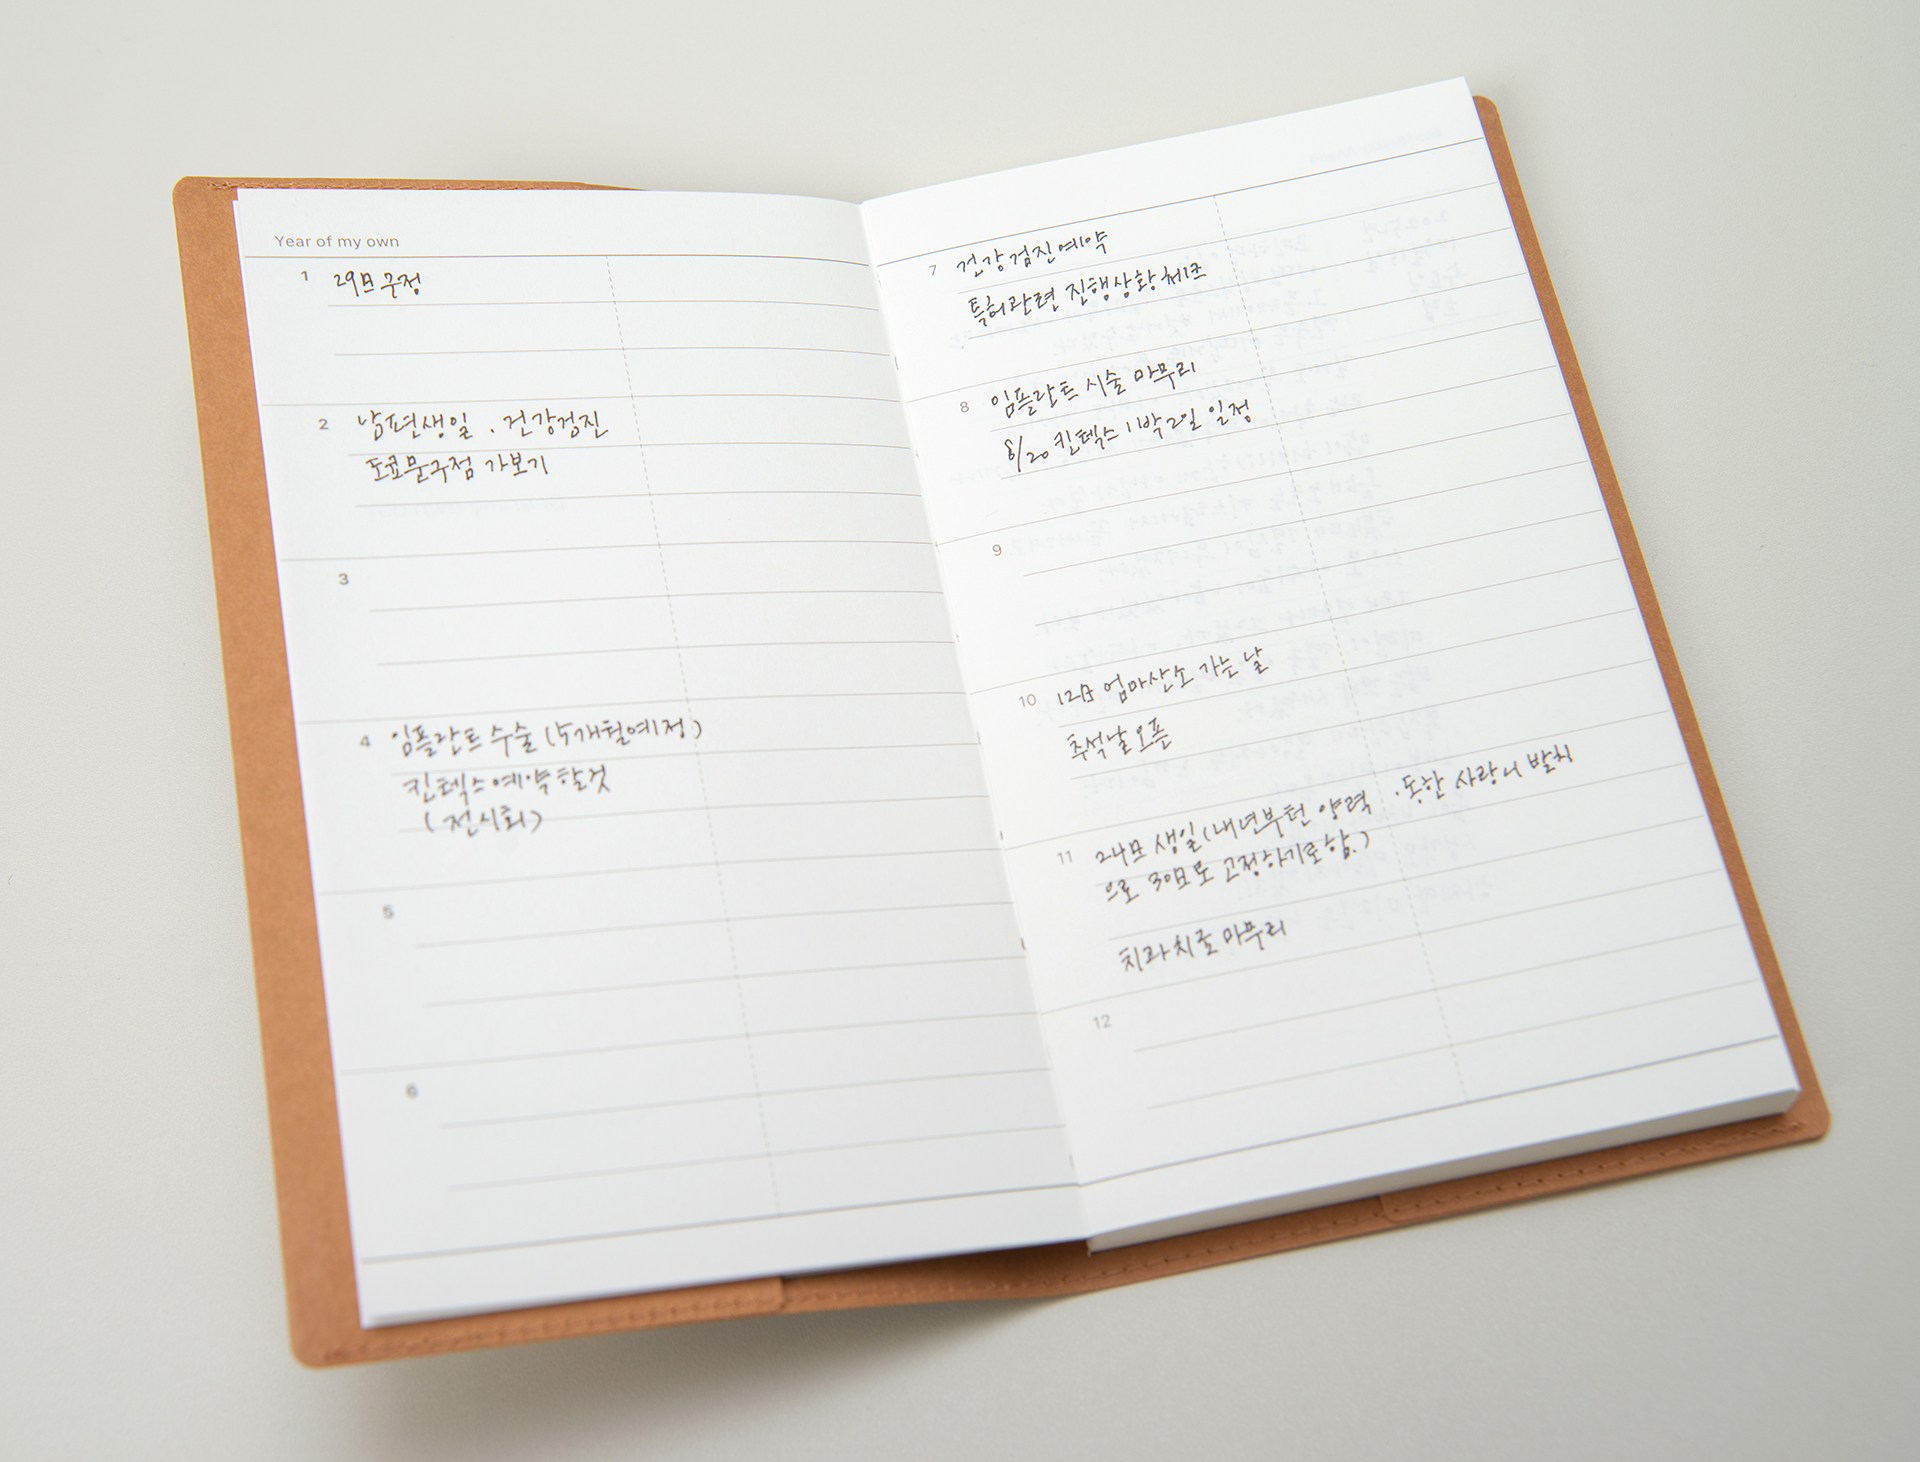 Year of my own
1 29日 구정
2 남편생일 . 건강검진
도쿄문구점 가보기
3
4 임플란트 수술 (5개월예정)
킨텍스예약할것
(전시회)
5
6
7 건강검진예약
특허관련 진행상황체크
8 임플란트 시술 마무리
8/20 킨텍스 1박2일 일정
9
10 12日 엄마산소 가는 날
추석날오픈
11 24日 생일(내년부턴 양력 · 동한 사랑니 발치
으로 30日로 고정하기로함.)
치과치료마무리
12